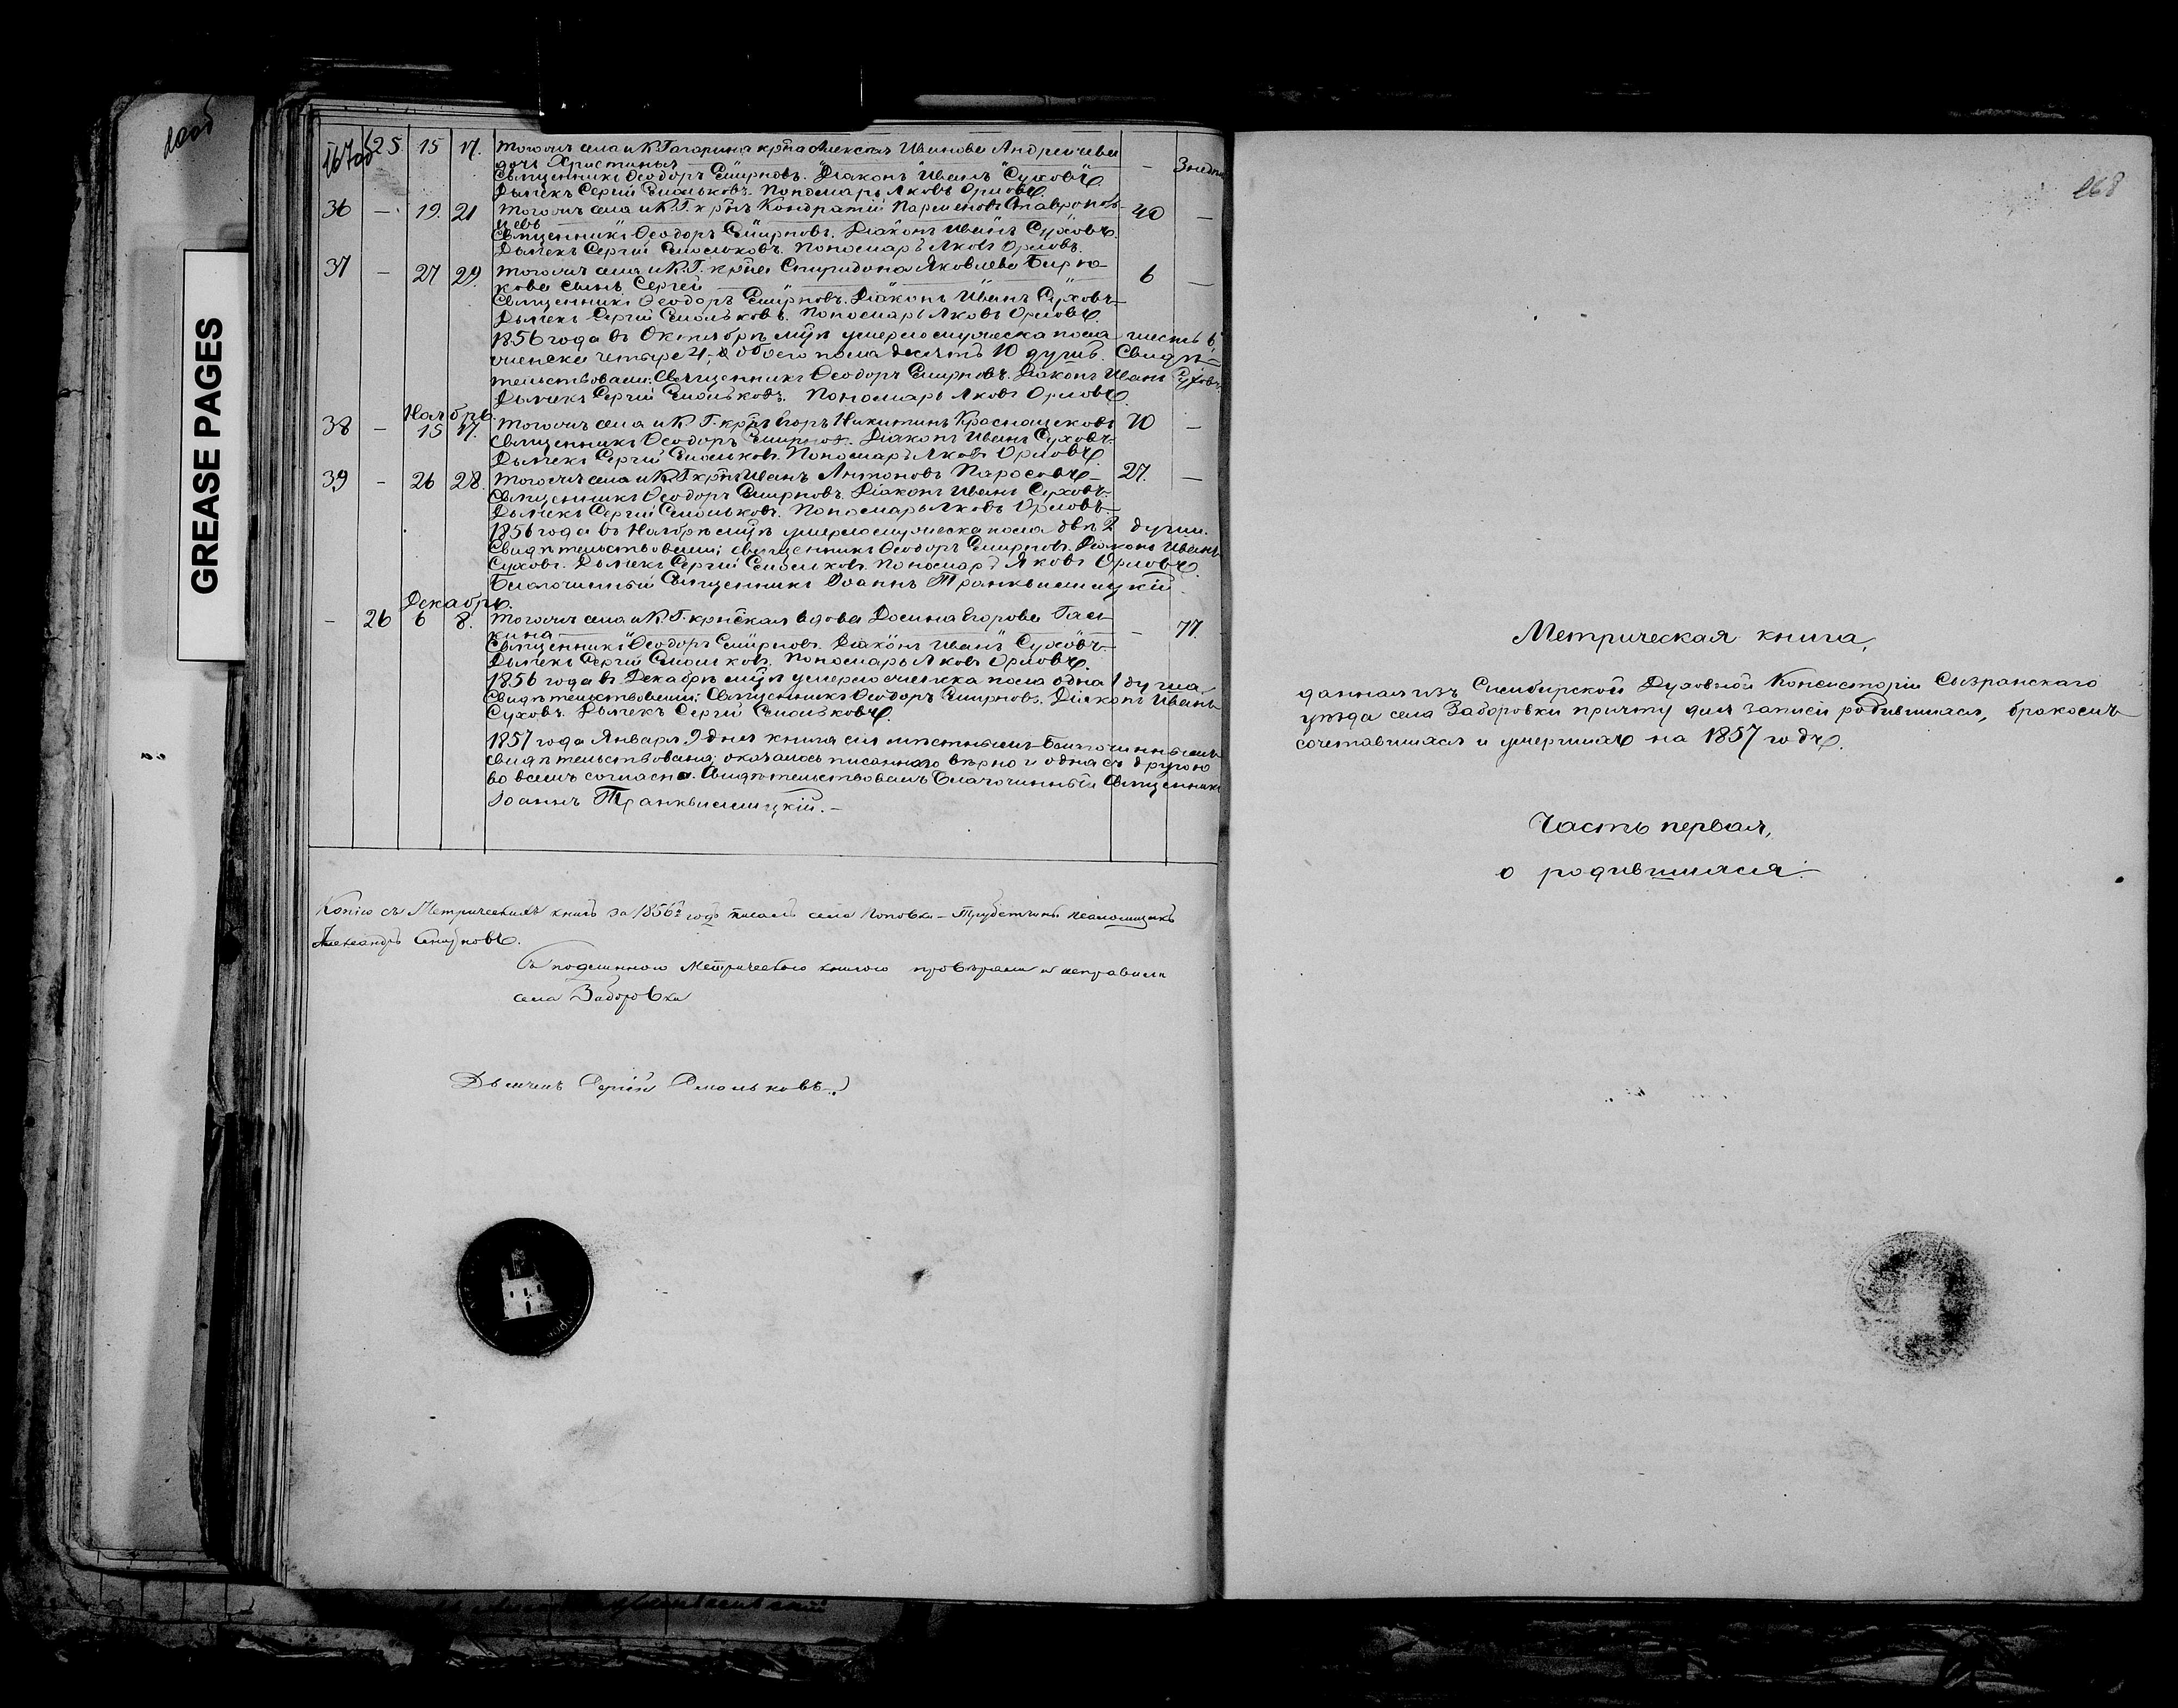 GREASE PAGES
167об
25 15 17. Тогожъ села и К. Гагарина крна Алексѣя Иванова Андреичева
дочь Христинья — — 3 недѣл
Священникъ Ѳеодоръ Смирновъ. Діаконъ Иванъ Суховъ
Дьячекъ Сергій Смольковъ. Пономарь Яковъ Орловъ.
36 — 19. 21 Тогожъ села и К. Г. крнъ Кондратій Парменовъ Ставрополь- 40 —
цевъ
Священникъ Ѳеодоръ Смирновъ. Діаконъ Иванъ Суховъ.
Дьячекъ Сергій Смольковъ. Пономарь Яковъ Орловъ.
37 — 27 29. Тогожъ села и К. Г. крна Спиридона Яковлева Бирю- 6 —
кова сынъ Сергей
Священникъ Ѳеодоръ Смирновъ. Діаконъ Иванъ Суховъ
Дьячекъ Сергій Смольковъ. Пономарь Яковъ Орловъ.
1856 года въ Октябрѣ мцѣ умерло мужеска пола шесть 6,
женска четыре 4, а обоего пола десять 10 душъ. Свидѣ-
тельствовали: Священникъ Ѳеодоръ Смирновъ. Діаконъ Иванъ Суховъ
Дьячекъ Сергій Смольковъ. Пономарь Яковъ Орловъ.
Ноябрь.
38 — 15 17. Тогожъ села и К. Г. крнъ Егоръ Никитинъ Краснощековъ 70 —
Священникъ Ѳеодоръ Смирновъ. Діаконъ Иванъ Суховъ.
Дьячекъ Сергій Смольковъ. Пономарь Яковъ Орловъ.
39 — 26 28. Тогожъ села и К. Г. крнъ Иванъ Антоновъ Паросовъ 27. —
Священникъ Ѳеодоръ Смирновъ. Діаконъ Иванъ Суховъ.
Дьячекъ Сергій Смольковъ. Пономарь Яковъ Орловъ.
1856 года въ Ноябрѣ мцѣ умерло мужеска пола двѣ 2 души.
Свидѣтельствовали: священникъ Ѳеодоръ Смирновъ. Діаконъ Иванъ
Суховъ. Дьячекъ Сергій Смольковъ. Пономарь Яковъ Орловъ.
Благочинный Священникъ Іоаннъ Транквиллицкій.
Декабрь.
— 26 6 8. Тогожъ села и К. Г. крнская вдова Домна Егорова Гась- — 77.
кина
Священникъ Ѳеодоръ Смирновъ. Діаконъ Иванъ Суховъ.
Дьячекъ Сергій Смольковъ. Пономарь Яковъ Орловъ.
1856 года въ Декабрѣ мцѣ умерло женска пола одна 1 душа
Свидѣтельствовали: Священникъ Ѳеодоръ Смирновъ. Діаконъ Иванъ
Суховъ. Дьячекъ Сергій Смольковъ.
1857 года Января 9 дня книга сія мѣстнымъ Благочиннымъ
свидѣтельствована; оказалось писанного вѣрно и одна съ другою
во всемъ согласна. Свидѣтельствовалъ Благочинный Священникъ
Іоаннъ Транквиллицкій. —
Копію съ Метрическихъ книгъ за 1856й годъ писалъ села Поповки-Трубетчины псаломщикъ
Александръ Смирновъ.
Съ подлинною Метрическою книгою провѣряли и исправили
села Заборовки
Дьячекъ Сергій Смольковъ.
268
Метрическая книга,
данная изъ Симбирской Духовной Консисторіи Сызранскаго
уѣзда села Заборовки причту для записи родившихся, бракомъ
сочетавшихся и умершихъ на 1857 годъ.
Часть первая,
о родившихся.